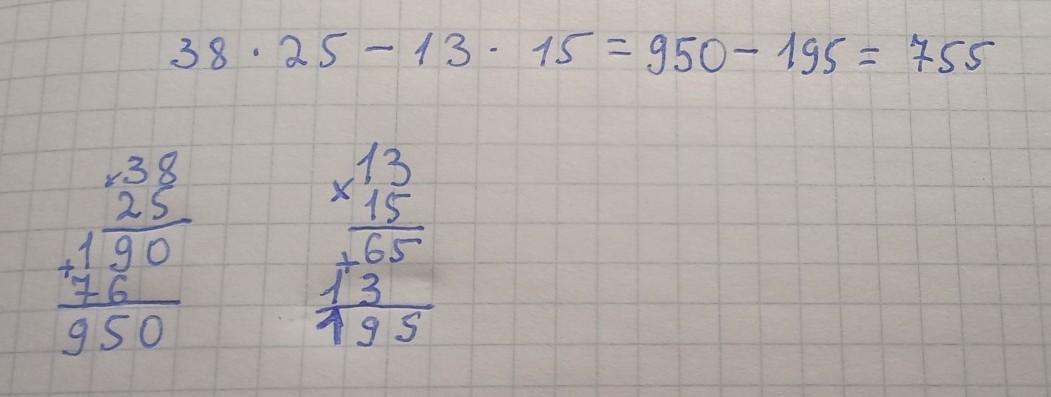 38 · 25 - 13 · 15 = 950 - 195 = 755
×38
25
+190
76
950
×13
15
+65
13
195